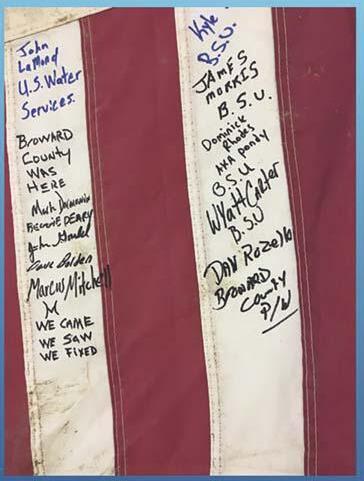 John
LaMond
U.S. Water
Services.
BROWARD
COUNTY
WAS
HERE
Mark
DEARY
Dave Bolden
Marcus Mitchell
M
WE CAME
WE SAW
WE FIXED
Kyle
B.S.U.
JAMES
MORRIS
B.S.U.
Dominick
Rhodes
AKA Pondy
B.S.U
Wyatt Carter
B.SU
DAN Rozello
BROWARD
County
P/W